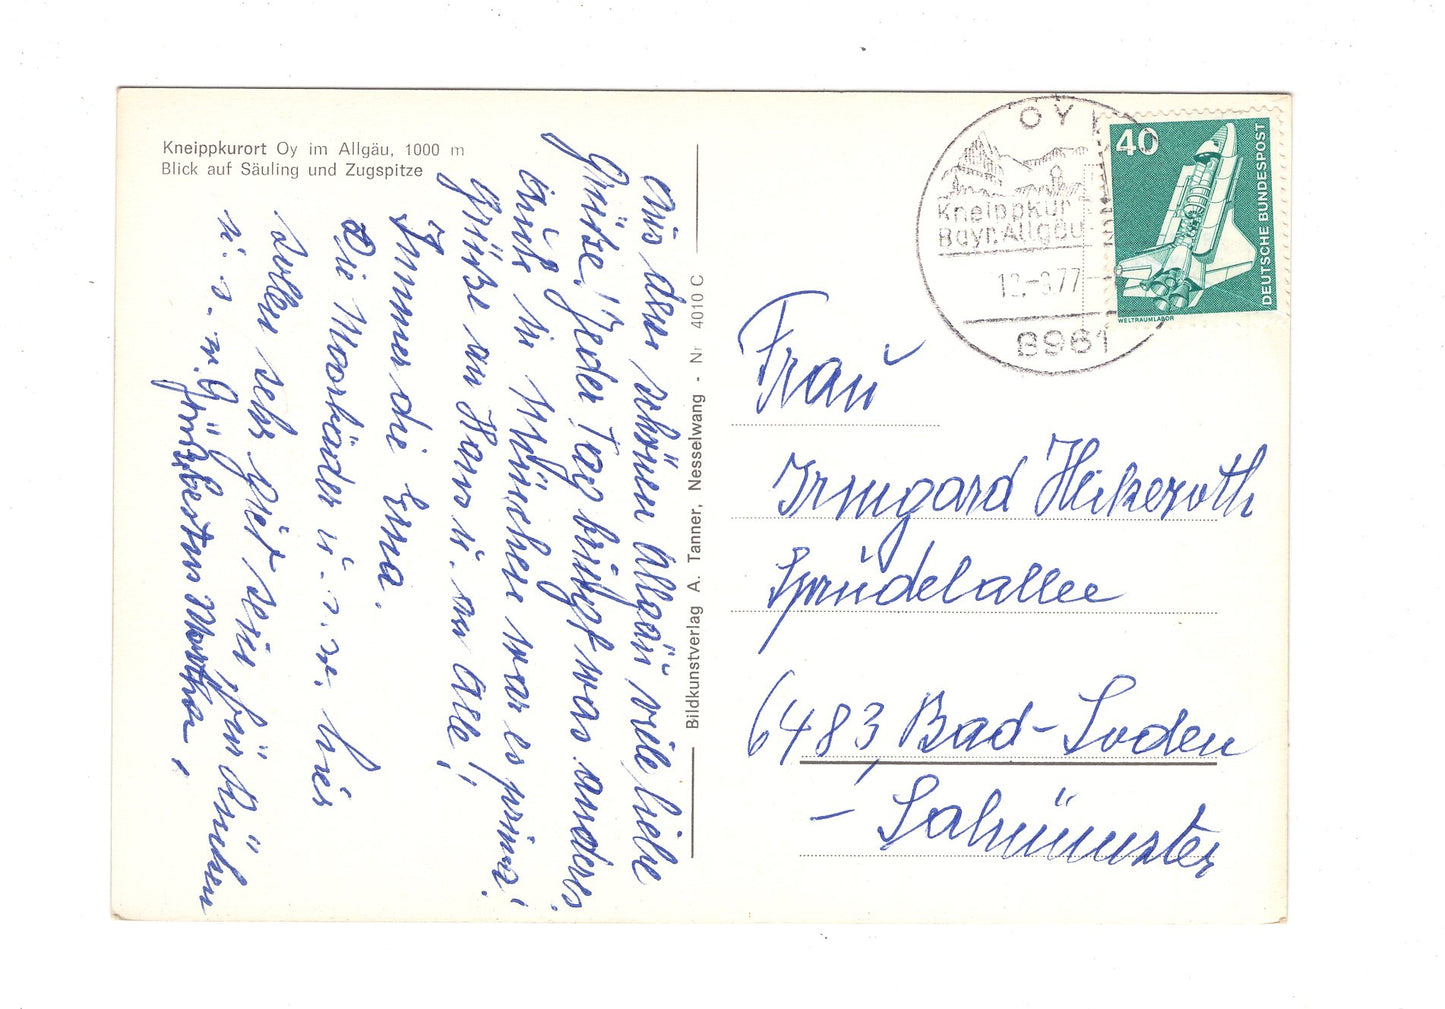 Kneippkurort Oy im Allgäu, 1000 m
Blick auf Säuling und Zugspitze
Aus dem schönen Allgäu viele liebe
Grüße! Jeder Tag bringt was anderes.
Auch in München war es prima!
Grüße an Hans u. an alle!
Immer die Erna.
Die Moorbäder u. s. w. hier
sollen sehr gut sein, für Rücken
u. s. w. Grüße
Martha,
Bildkunstverlag A. Tanner, Nesselwang - Nr 4010 C
OY
Kneippkur
Bayr. Allgäu
77
8961
40
DEUTSCHE BUNDESPOST
WELTRAUMLABOR
Frau
Irmgard Heikeroth
Sprudelallee
6483 Bad-Soden
- Salmünster